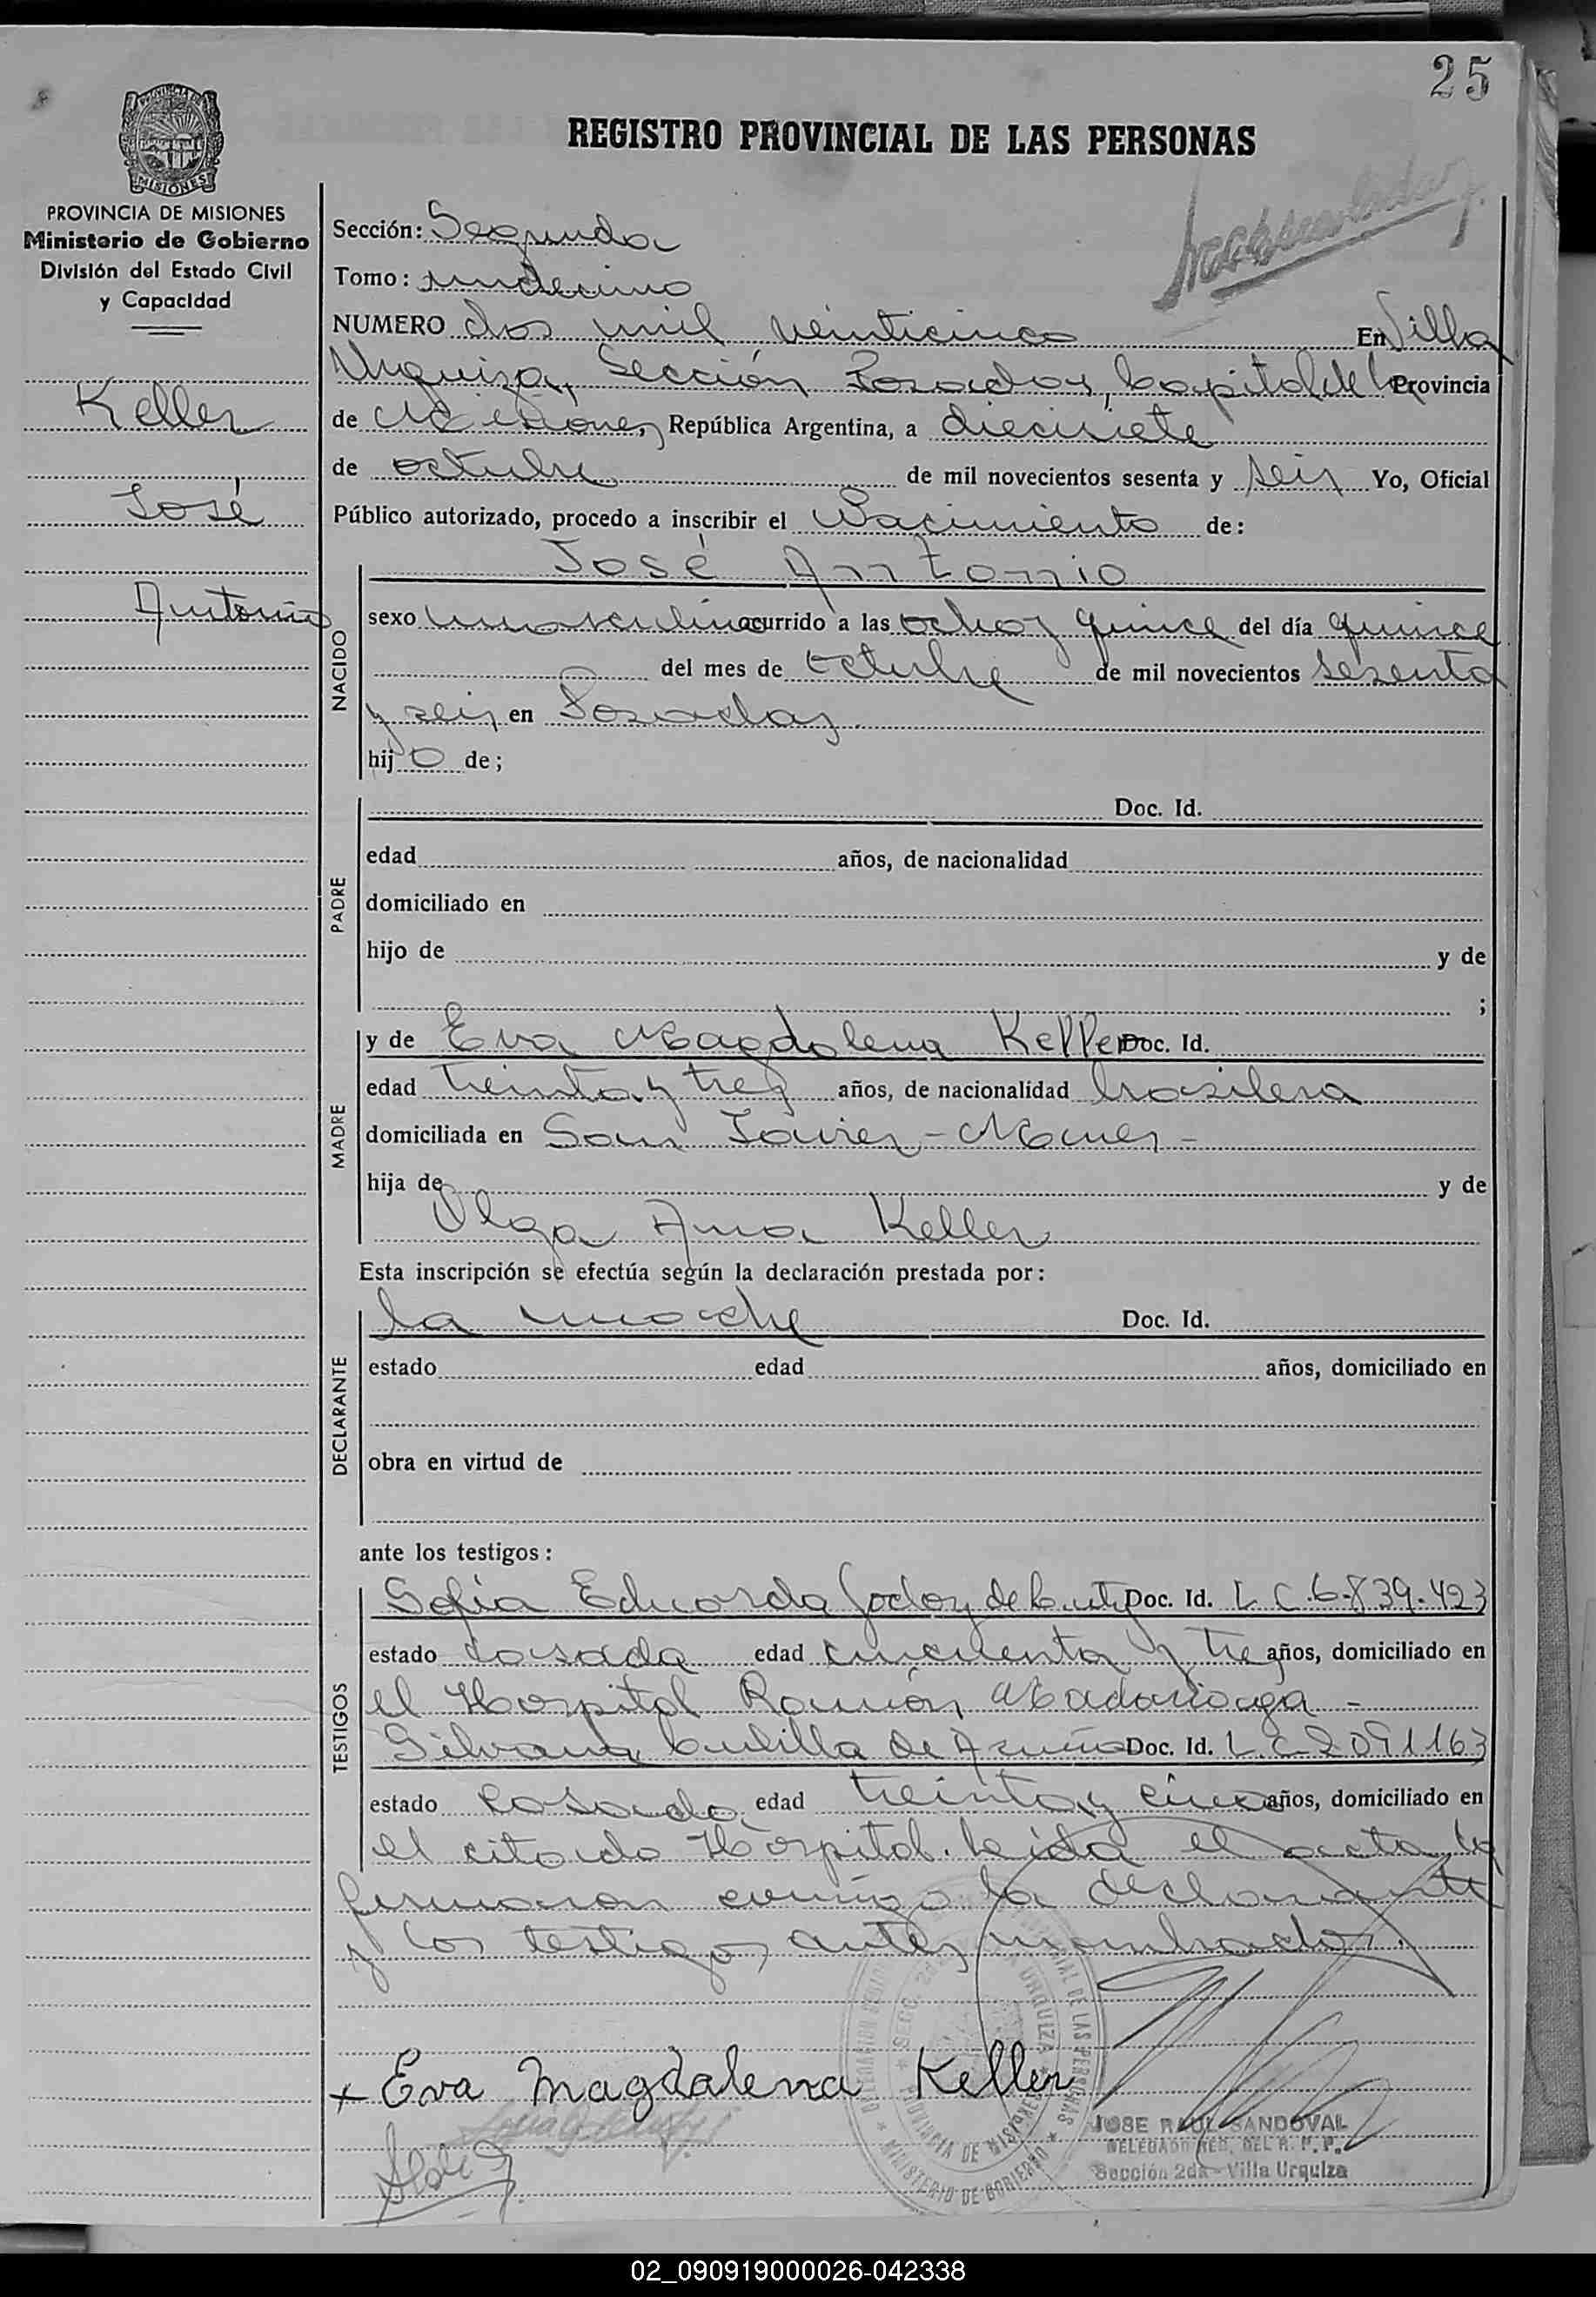 25
REGISTRO PROVINCIAL DE LAS PERSONAS
MISIONES
PROVINCIA DE MISIONES
Ministerio de Gobierno
División del Estado Civil
y Capacidad
Keller
José
Antonio
Sección: Segunda
Tomo: undecimo
NUMERO dos mil veinticinco En Villa
Urquiza, Sección Posadas, Capital de la Provincia
de Misiones, República Argentina, a diecisiete
de octubre de mil novecientos sesenta y seis Yo, Oficial
Público autorizado, procedo a inscribir el Nacimiento de:
NACIDO
José Antonio
sexo masculino ocurrido a las ocho y quince del día quince
del mes de octubre de mil novecientos sesenta
y seis en Posadas
hijo de;
PADRE
Doc. Id.
edad años, de nacionalidad
domiciliado en
hijo de y de
;
MADRE
y de Eva Magdalena Keller Doc. Id.
edad treinta y tres años, de nacionalidad brasilera
domiciliada en San Javier - Mnes -
hija de y de
Olga Ana Keller
Esta inscripción se efectúa según la declaración prestada por:
DECLARANTE
la madre Doc. Id.
estado edad años, domiciliado en
obra en virtud de
ante los testigos:
TESTIGOS
Sofia Eduarda Godoy de Doc. Id. L C. 6.839.423
estado casada edad cincuenta y tres años, domiciliado en
el Hospital Ramón Madariaga -
Silvana de Doc. Id. L.C. 2091163
estado casada edad treinta y cinco años, domiciliado en
el citado Hospital. Leida el acta la
firmaron conmigo la declarante
y los testigos antes nombrados
x Eva Magdalena Keller
JOSE RAUL SANDOVAL
DELEGADO REG. DEL R. P. P.
Sección 2da - Villa Urquiza
02_090919000026-042338